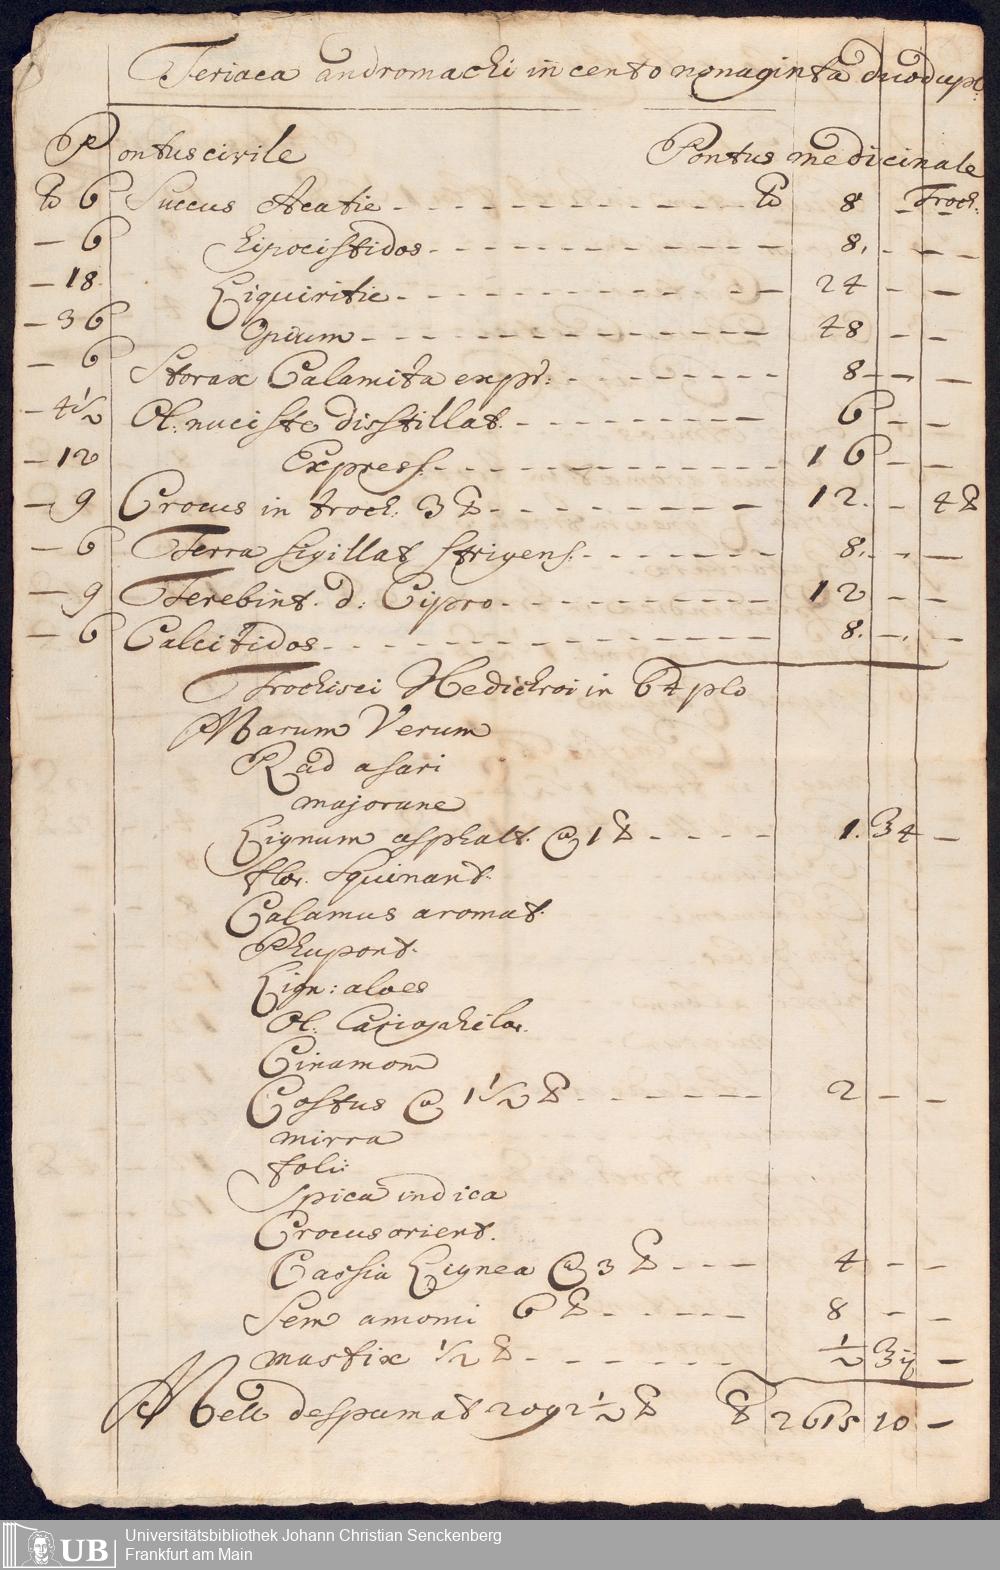 Teriaca andromachi in cento nonaginta duo dupl:
Pontus civile Pontus medicinale
℔ 6 Succus Acatie ℔ 8 – Troch:
– 6 Hipocistidos 8. – –
– 18 Liquiritie 24 – –
– 36 Opium 48 – –
– 6 Storax Calamita expr: 8 – –
– 4½ Ol: nuciste disstillat. 6 – –
– 12 Express. 16 – –
– 9 Crocus in troch: 3 ℔ 12. – 4 ℔
– 6 Terra sigillat strigens. 8. – –
– 9 Terebint. d: Cipro 12 – –
– 6 Calcitidos 8. – –
Trochisci Hedichroi in 64 plo
Marum Verum
Rad asari
majorane
Lignum asphalt. @ 1 ℔ 1. ℥ 4 –
flor. Squinant.
Calamus aromat.
Phupont.
Lign: aloes
Ol. Cariophilor.
Cinamom
Costus @ 1½ ℔ 2 – –
mirra
folii
Spica indica
Crocus orient.
Cassia Lignea @ 3 ℔ 4 – –
Sem amomi 6 ℔ 8 – –
mastix ½ ℔ ½ ℥ ij –
Mell despumat 2092½ ℔ ℔ 2615 10 –
UB Universitätsbibliothek Johann Christian Senckenberg
Frankfurt am Main